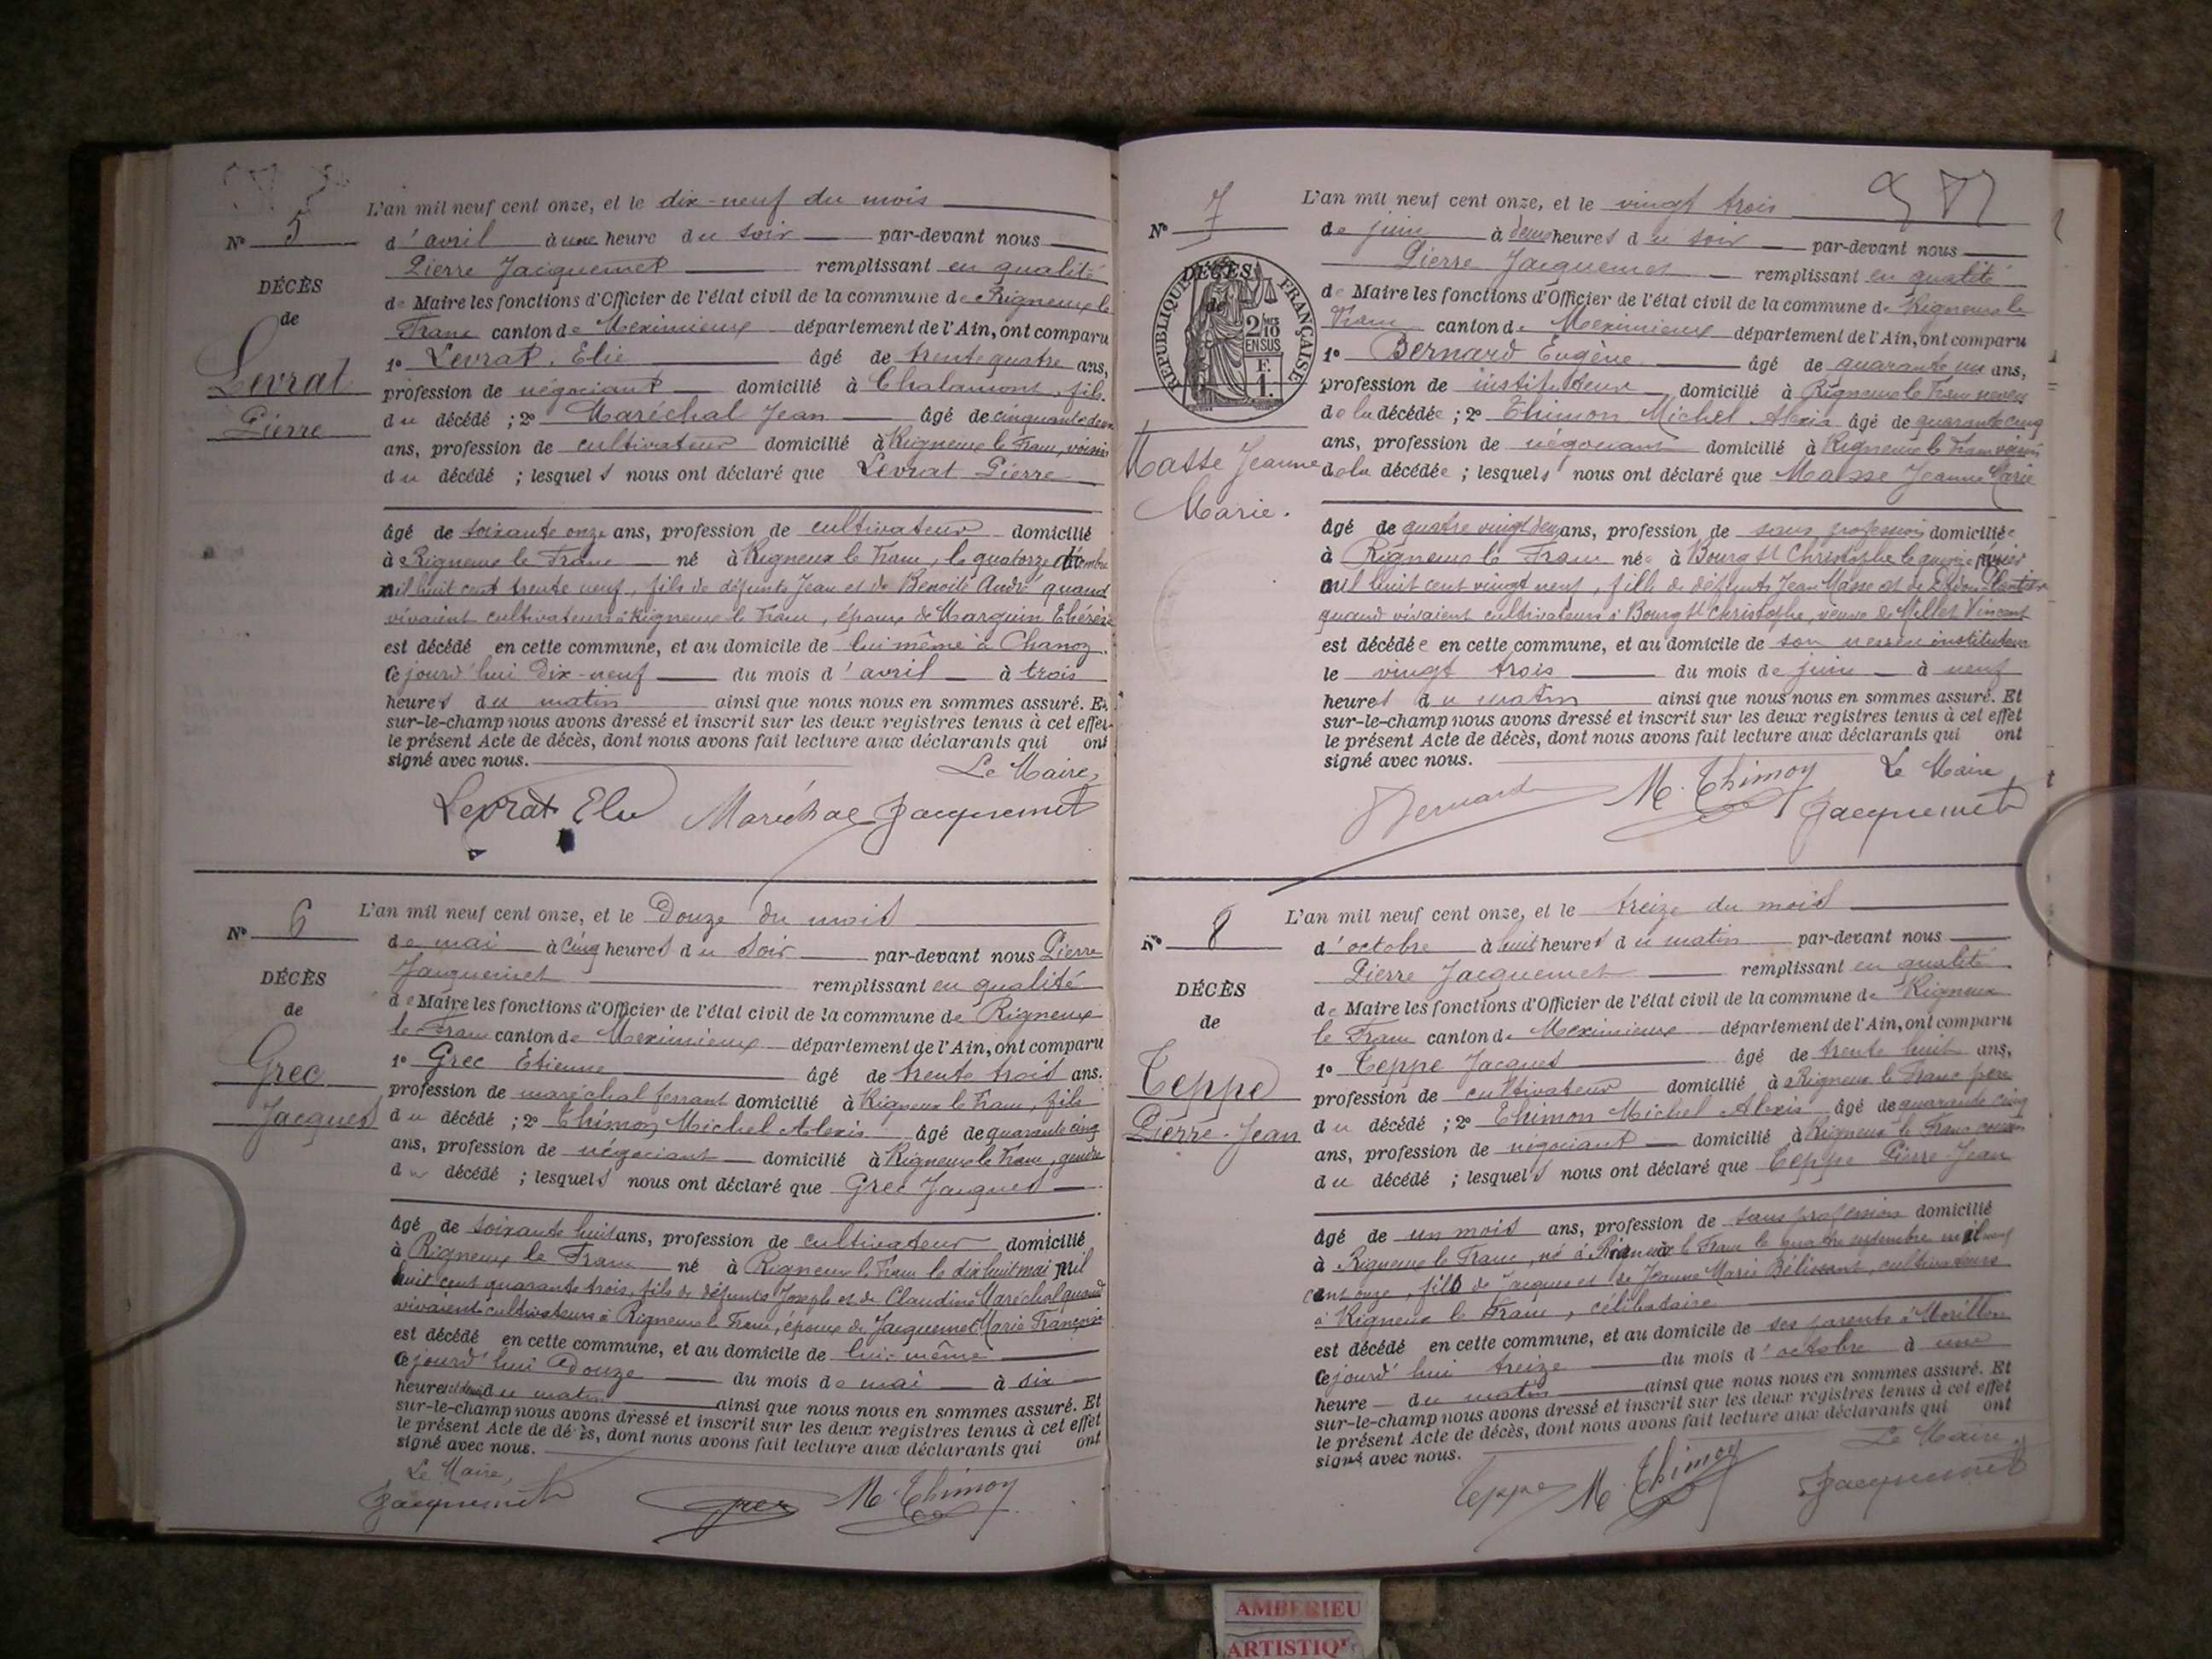 L'an mil neuf cent onze, et le dix-neuf du mois
N° 5 d'avril à une heure du soir par-devant nous
Pierre Jacquemet remplissant en qualité
DÉCÈS
de Maire les fonctions d'Officier de l'état civil de la commune de Rigneux le
de
Franc canton de Meximieux département de l'Ain, ont comparu
1° Levrat Elie âgé de trente quatre ans,
Levrat
profession de négociant domicilié à Chalamont, fils
Pierre
du décédé ; 2° Maréchal Jean âgé de cinquante deux
ans, profession de cultivateur domicilié à Rigneux le Franc, voisin
du décédé ; lesquels nous ont déclaré que Levrat Pierre
âgé de soixante onze ans, profession de cultivateur domicilié
à Rigneux le Franc né à Rigneux le Franc, le quatorze décembre
mil huit cent trente neuf, fils de défunts Jean et de Benoite André quand
vivaient cultivateurs à Rigneux le Franc, époux de Marguin Thérèse
est décédé en cette commune, et au domicile de lui même à Chanoz.
Cejourd'hui Dix-neuf du mois d'avril à trois
heures du matin ainsi que nous nous en sommes assuré. Et
sur-le-champ nous avons dressé et inscrit sur les deux registres tenus à cet effet
le présent Acte de décès, dont nous avons fait lecture aux déclarants qui ont
signé avec nous. Le Maire,
Levrat Elie Maréchal Jacquemet
L'an mil neuf cent onze, et le Douze du mois
N° 6 de mai à cinq heures du soir par-devant nous Pierre
Jacquemet remplissant en qualité
DÉCÈS
de Maire les fonctions d'Officier de l'état civil de la commune de Rigneux
de
le Franc canton de Meximieux département de l'Ain, ont comparu
1° Grec Etienne âgé de trente trois ans.
Grec
profession de maréchal ferrant domicilié à Rigneux le Franc, fils
Jacques
du décédé ; 2° Thimon Michel Alexis âgé de quarante cinq
ans, profession de négociant domicilié à Rigneux le Franc, gendre
du décédé ; lesquels nous ont déclaré que Grec Jacques
âgé de soixante huit ans, profession de cultivateur domicilié
à Rigneux le Franc né à Rigneux le Franc le dix huit mai mil
huit cent quarante trois, fils de défunts Joseph et de Claudine Maréchal quand
vivaient cultivateurs à Rigneux le Franc, époux de Jacquemet Marie Françoise
est décédé en cette commune, et au domicile de lui-même
Cejourd'hui Douze du mois de mai à six
heures du matin ainsi que nous nous en sommes assuré. Et
sur-le-champ nous avons dressé et inscrit sur les deux registres tenus à cet effet
le présent Acte de décès, dont nous avons fait lecture aux déclarants qui ont
signé avec nous.
Le Maire,
Jacquemet Grec M. Thimon
L'an mil neuf cent onze, et le vingt trois
N° 7 de juin à deux heures du soir par-devant nous
Pierre Jacquemet remplissant en qualité
RÉPUBLIQUE FRANÇAISE
DÉCÈS
de
2/10 MES
EN SUS
F.
1.
de Maire les fonctions d'Officier de l'état civil de la commune de Rigneux le
Franc canton de Meximieux département de l'Ain, ont comparu
1° Bernard Eugène âgé de quarante un ans,
profession de instituteur domicilié à Rigneux le Franc neveu
de la décédée ; 2° Thimon Michel Alexis âgé de quarante cinq
ans, profession de négociant domicilié à Rigneux le Franc voisin
Masse Jeanne
de la décédée ; lesquels nous ont déclaré que Masse Jeanne Marie
Marie.
âgé de quatre vingt deux ans, profession de sans profession domiciliée
à Rigneux le Franc née à Bourg St Christophe le quinze
mil huit cent vingt neuf, fille de défunts Jean Masse et de
quand vivaient cultivateurs à Bourg St Christophe, veuve de Millet Vincent
est décédée en cette commune, et au domicile de son neveu instituteur
le vingt trois du mois de juin à neuf
heures du matin ainsi que nous nous en sommes assuré. Et
sur-le-champ nous avons dressé et inscrit sur les deux registres tenus à cet effet
le présent Acte de décès, dont nous avons fait lecture aux déclarants qui ont
signé avec nous. Le Maire
Bernard M. Thimon Jacquemet
L'an mil neuf cent onze, et le treize du mois
N° 8 d'octobre à huit heures du matin par-devant nous
Pierre Jacquemet remplissant en qualité
DÉCÈS
de Maire les fonctions d'Officier de l'état civil de la commune de Rigneux
de
le Franc canton de Meximieux département de l'Ain, ont comparu
1° Teppe Jacques âgé de trente huit ans,
Teppe
profession de cultivateur domicilié à Rigneux le Franc père
Pierre-Jean
du décédé ; 2° Thimon Michel Alexis âgé de quarante cinq
ans, profession de négociant domicilié à Rigneux le Franc
du décédé ; lesquels nous ont déclaré que Teppe Pierre-Jean
âgé de un mois ans, profession de sans profession domicilié
à Rigneux le Franc, né à Rigneux le Franc le quatre septembre mil neuf
cent onze, fils de Jacques et de Jeanne Marie cultivateurs
à Rigneux le Franc, célibataire
est décédé en cette commune, et au domicile de ses parents à Morillon
Cejourd'hui treize du mois d'octobre à une
heure du matin ainsi que nous nous en sommes assuré. Et
sur-le-champ nous avons dressé et inscrit sur les deux registres tenus à cet effet
le présent Acte de décès, dont nous avons fait lecture aux déclarants qui ont
signé avec nous. Le Maire,
Teppe M. Thimon Jacquemet
AMBERIEU
ARTISTIQ